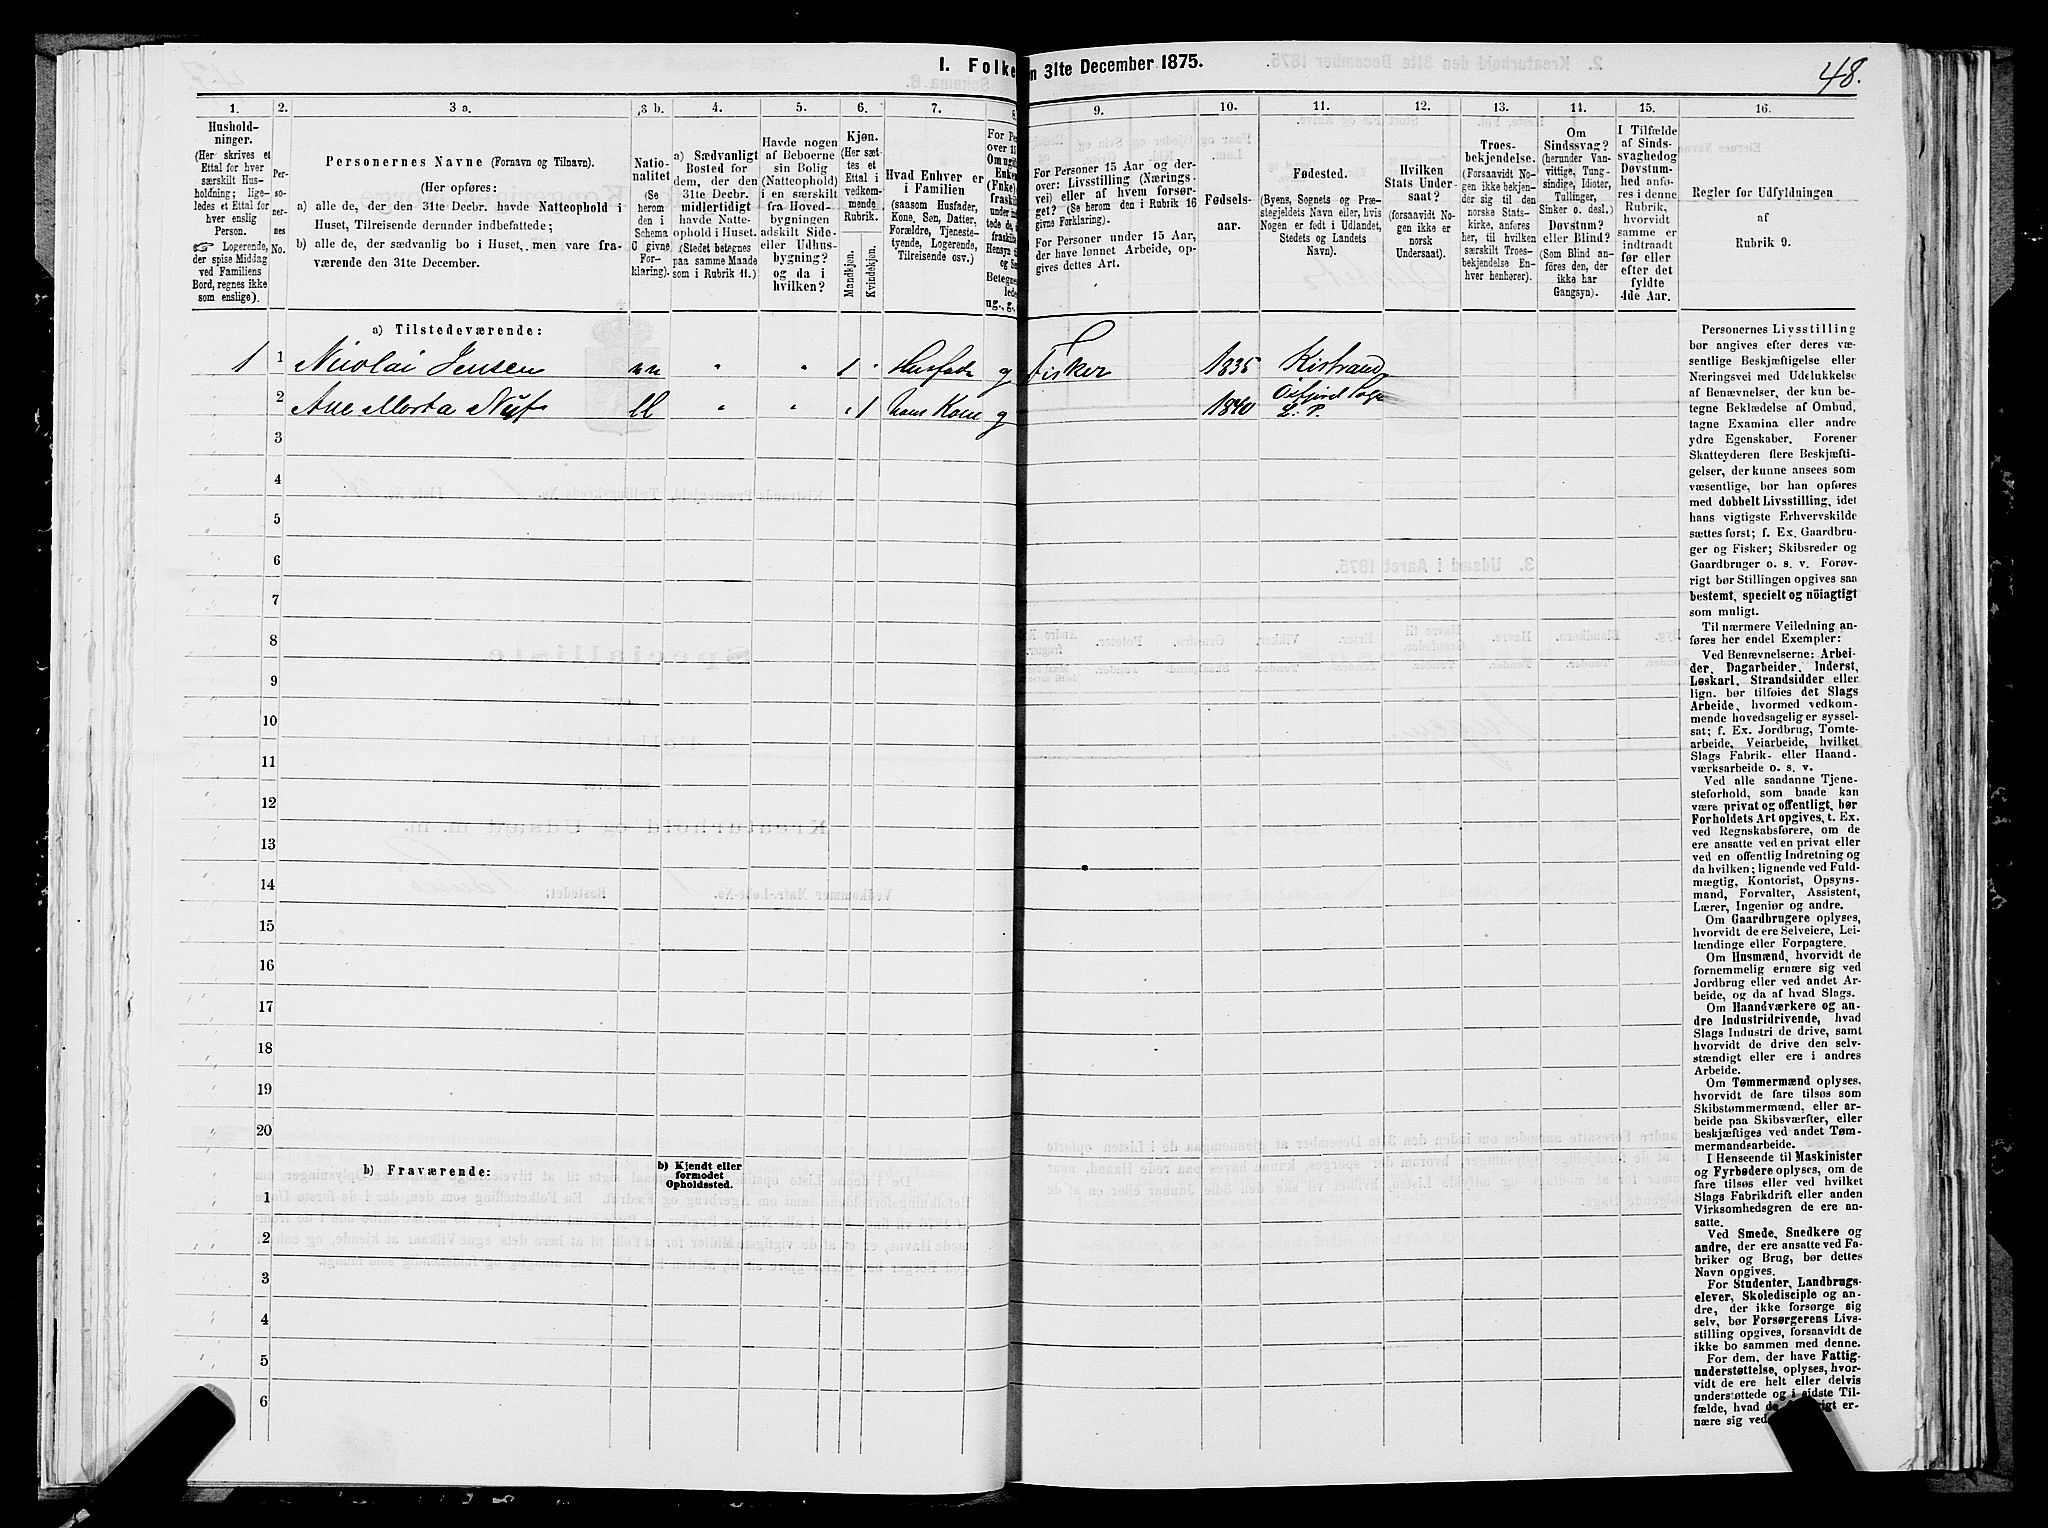 I. Folke
n 31te December 1875.
48.
1.
2.
3 a.
3 b.
4.
5.
6.
7.
8
9.
10.
11.
12.
13.
14.
15.
16.
Hushold-
ninger.
(Her skrives et
Ettal for hver
særskilt Hus-
holdning; lige-
ledes et Ettal for
hver enslig
Person.
☞ Logerende,
der spise Middag
ved Familiens
Bord, regnes ikke
som enslige).
Per-
so-
ner-
nes
No.
Personernes Navne (Fornavn og Tilnavn).
(Her opføres:
a) alle de, der den 31te Decbr. havde Natteophold i
Huset, Tilreisende derunder indbefattede;
b) alle de, der sædvanlig bo i Huset, men vare fra-
værende den 31te December.
Natio-
nalitet
(Se
herom
den i
Schema
C givne
For-
klaring).
a) Sædvanligt
Bosted for
dem, der den
31te Decbr.
midlertidigt
havde Natte-
ophold i Huset.
(Stedet betegnes
paa samme Maade
som i Rubrik 11.)
Havde nogen
af Beboerne
sin Bolig
(Natteophold)
i en særskilt
fra Hoved-
bygningen
adskilt Side-
eller Udhus-
bygning?
og da i
hvilken?
Kjøn.
(Her sæt-
tes et
Ettal i
vedkom-
mende
Rubrik.
Mandkjøn.
Kvindekjøn.
Hvad Enhver er
i Familien
(saasom Husfader,
Kone, Søn, Datter,
Forældre, Tjeneste-
tyende, Logerende,
Tilreisende osv.)
For Pe
over 15
Om ugift
Enke
(Fnke)
fraskil
under in
tede de,
fraskilt
Hensyn t
og Se
Betegne
lede
ug., g.,
For Personer 15 Aar og der-
over: Livsstilling (Nærings-
vei) eller af hvem forsør-
get? (Se herom de i Rubrik 16
givne Forklaring).
For Personer under 15 Aar,
der have lønnet Arbeide, op-
gives dettes Art.
Fødsels-
aar.
Fødested.
(Byens, Sognets og Præ-
stegjeldets Navn eller, hvis
Nogen er født i Udlandet,
Stedets og Landets
Navn).
Hvilken
Stats Under-
saat?
(forsaavidt No-
gen ikke er
norsk
Undersaat).
Troes-
bekjendelse.
(Forsaavidt No-
gen ikke bekjen-
der sig til den
norske Stats-
kirke, anføres
her, til hvilken
særskilt Troes-
bekjendelse En-
hver henhører).
Om
Sindssvag?
(herunder Van-
vittige, Tung-
sindige, Idioter,
Tullinger,
Sinker o. desl.)
Døvstum?
eller Blind?
(Som Blind an-
føres den, der
ikke har
Gangsyn).
I Tilfælde
af Sinds-
svaghedog
Døvstum-
hed anfø-
res i denne
Rubrik,
hvorvidt
samme er
indtraadt
før eller
efter det
fyldte
4de Aar.
Regler for Udfyldningen
af
Rubrik 9.
a) Tilstedeværende:
1 1 Nicolai Jensen nn " " 1 " Husfader g Fisker 1835 Kistrand
2 Ane Marta Nils " " " 1 hans Kone g 1840 Oxfjord Sogn
L. P.
3
4
5
6
7
8
9
10
11
12
13
14
15
16
17
18
19
20
b) Fraværende:
b) Kjendt eller
formodet
Opholdssted.
1
2
3
4
5
6
Personernes Livsstilling
bør angives efter deres væ-
sentlige Beskjæftigelse eller
Næringsvei med Udelukkelse
af Benævnelser, der kun be-
tegne Beklædelse af Ombud,
tagne Examina eller andre
ydre Egenskaber. Forener
Skatteyderen flere Beskjæfti-
gelser, der kunne ansees som
væsentlige, bør han opføres
med dobbelt Livsstilling, idet
hans vigtigste Erhvervskilde
sættes først; f. Ex. Gaardbru-
ger og Fisker; Skibsreder og
Gaardbruger o. s. v. Forøv-
rigt bør Stillingen opgives saa
bestemt, specielt og nöiagtigt
som muligt.
Til nærmere Veiledning an-
føres her endel Exempler:
Ved Benævnelserne: Arbei-
der, Dagarbeider, Inderst,
Løskarl, Strandsidder eller
lign. bør tilføies det Slags
Arbeide, hvormed vedkom-
mende hovedsagelig er syssel-
sat; f. Ex. Jordbrug, Tomte-
arbeide, Veiarbeide, hvilket
Slags Fabrik- eller Haand-
værksarbeide o. s. v.
Ved alle saadanne Tjene-
steforhold, som baade kan
være privat og offentligt, bør
Forholdets Art opgives, t. Ex.
ved Regnskabsførere, om de
ere ansatte ved en privat eller
ved en offentlig Indretning og
da hvilken; lignende ved Fuld-
mægtig, Kontorist, Opsyns-
mand, Forvalter, Assistent,
Lærer, Ingeniør og andre.
Om Gaardbrugere oplyses,
hvorvidt de ere Selveiere, Lei-
lændinge eller Forpagtere.
Om Husmænd, hvorvidt de
fornemmelig ernære sig ved
Jordbrug eller ved andet Ar-
beide, og da af hvad Slags.
Om Haandværkere og an-
dre Industridrivende, hvad
Slags Industri de drive, samt
hvorvidt de drive den selv-
stændigt eller ere i andres
Arbeide.
Om Tømmermænd oplyses,
hvorvidt de fare tilsøs som
Skibstømmermænd, eller ar-
beide paa Skibsværfter, eller
beskjæftiges ved andet Tøm-
mermandsarbeide.
I Henseende til Maskinister
og Fyrbødere oplyses, om de
fare tilsøs eller ved hvilket
Slags Fabrikdrift eller anden
Virksomhedsgren de ere an-
satte.
Ved Smede, Snedkere og
andre, der ere ansatte ved Fa-
briker og Brug, bør dettes
Navn opgives.
For Studenter, Landbrugs-
elever, Skoledisciple og an-
dre, der ikke forsørge sig
selv, bør Forsørgerens Livs-
stilling opgives, forsaavidt de
ikke bo sammen med denne.
For dem, der have Fattig-
understøttelse, oplyses, hvor-
vidt de ere helt eller delvis
understøttede og i sidste Til-
fælde, hvad de rigt er-
nære sig ved